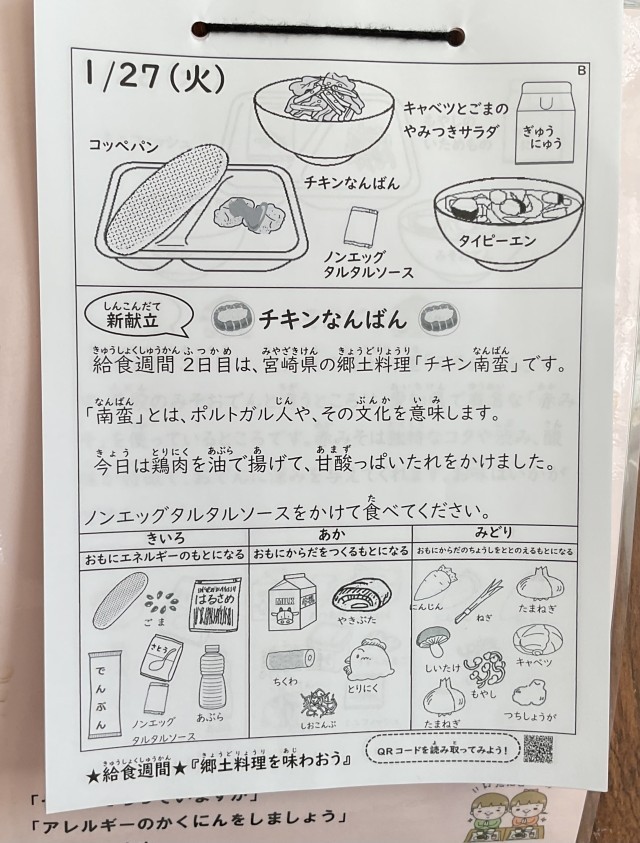 1/27(火)
B
コッペパン
キャベツとごまの
やみつきサラダ
ぎゅう
にゅう
チキンなんばん
ノンエッグ
タルタルソース
タイピーエン
しんこんだて
新献立
チキンなんばん
きゅうしょくしゅうかん ふつかめ みやざきけん きょうどりょうり なんばん
給食週間 2日目は、宮崎県の郷土料理「チキン南蛮」です。
なんばん じん ぶんか いみ
「南蛮」とは、ポルトガル人や、その文化を意味します。
きょう とりにく あぶら あ あまず
今日は鶏肉を油で揚げて、甘酸っぱいたれをかけました。
た
ノンエッグタルタルソースをかけて食べてください。
きいろ
おもにエネルギーのもとになる
あか
おもにからだをつくるもとになる
みどり
おもにからだのちょうしをととのえるもとになる
ごま
はるさめ
でんぷん
さとう
ノンエッグ
タルタルソース
あぶら
MILK
やきぶた
ちくわ
とりにく
しおこんぶ
にんじん
ねぎ
たまねぎ
しいたけ
もやし
キャベツ
たまねぎ
つちしょうが
きゅうしょくしゅうかん きょうどりょうり あじ
★給食週間★『郷土料理を味わおう』
よ と
QRコードを読み取ってみよう!
「アレルギーのかくにんをしましょう」